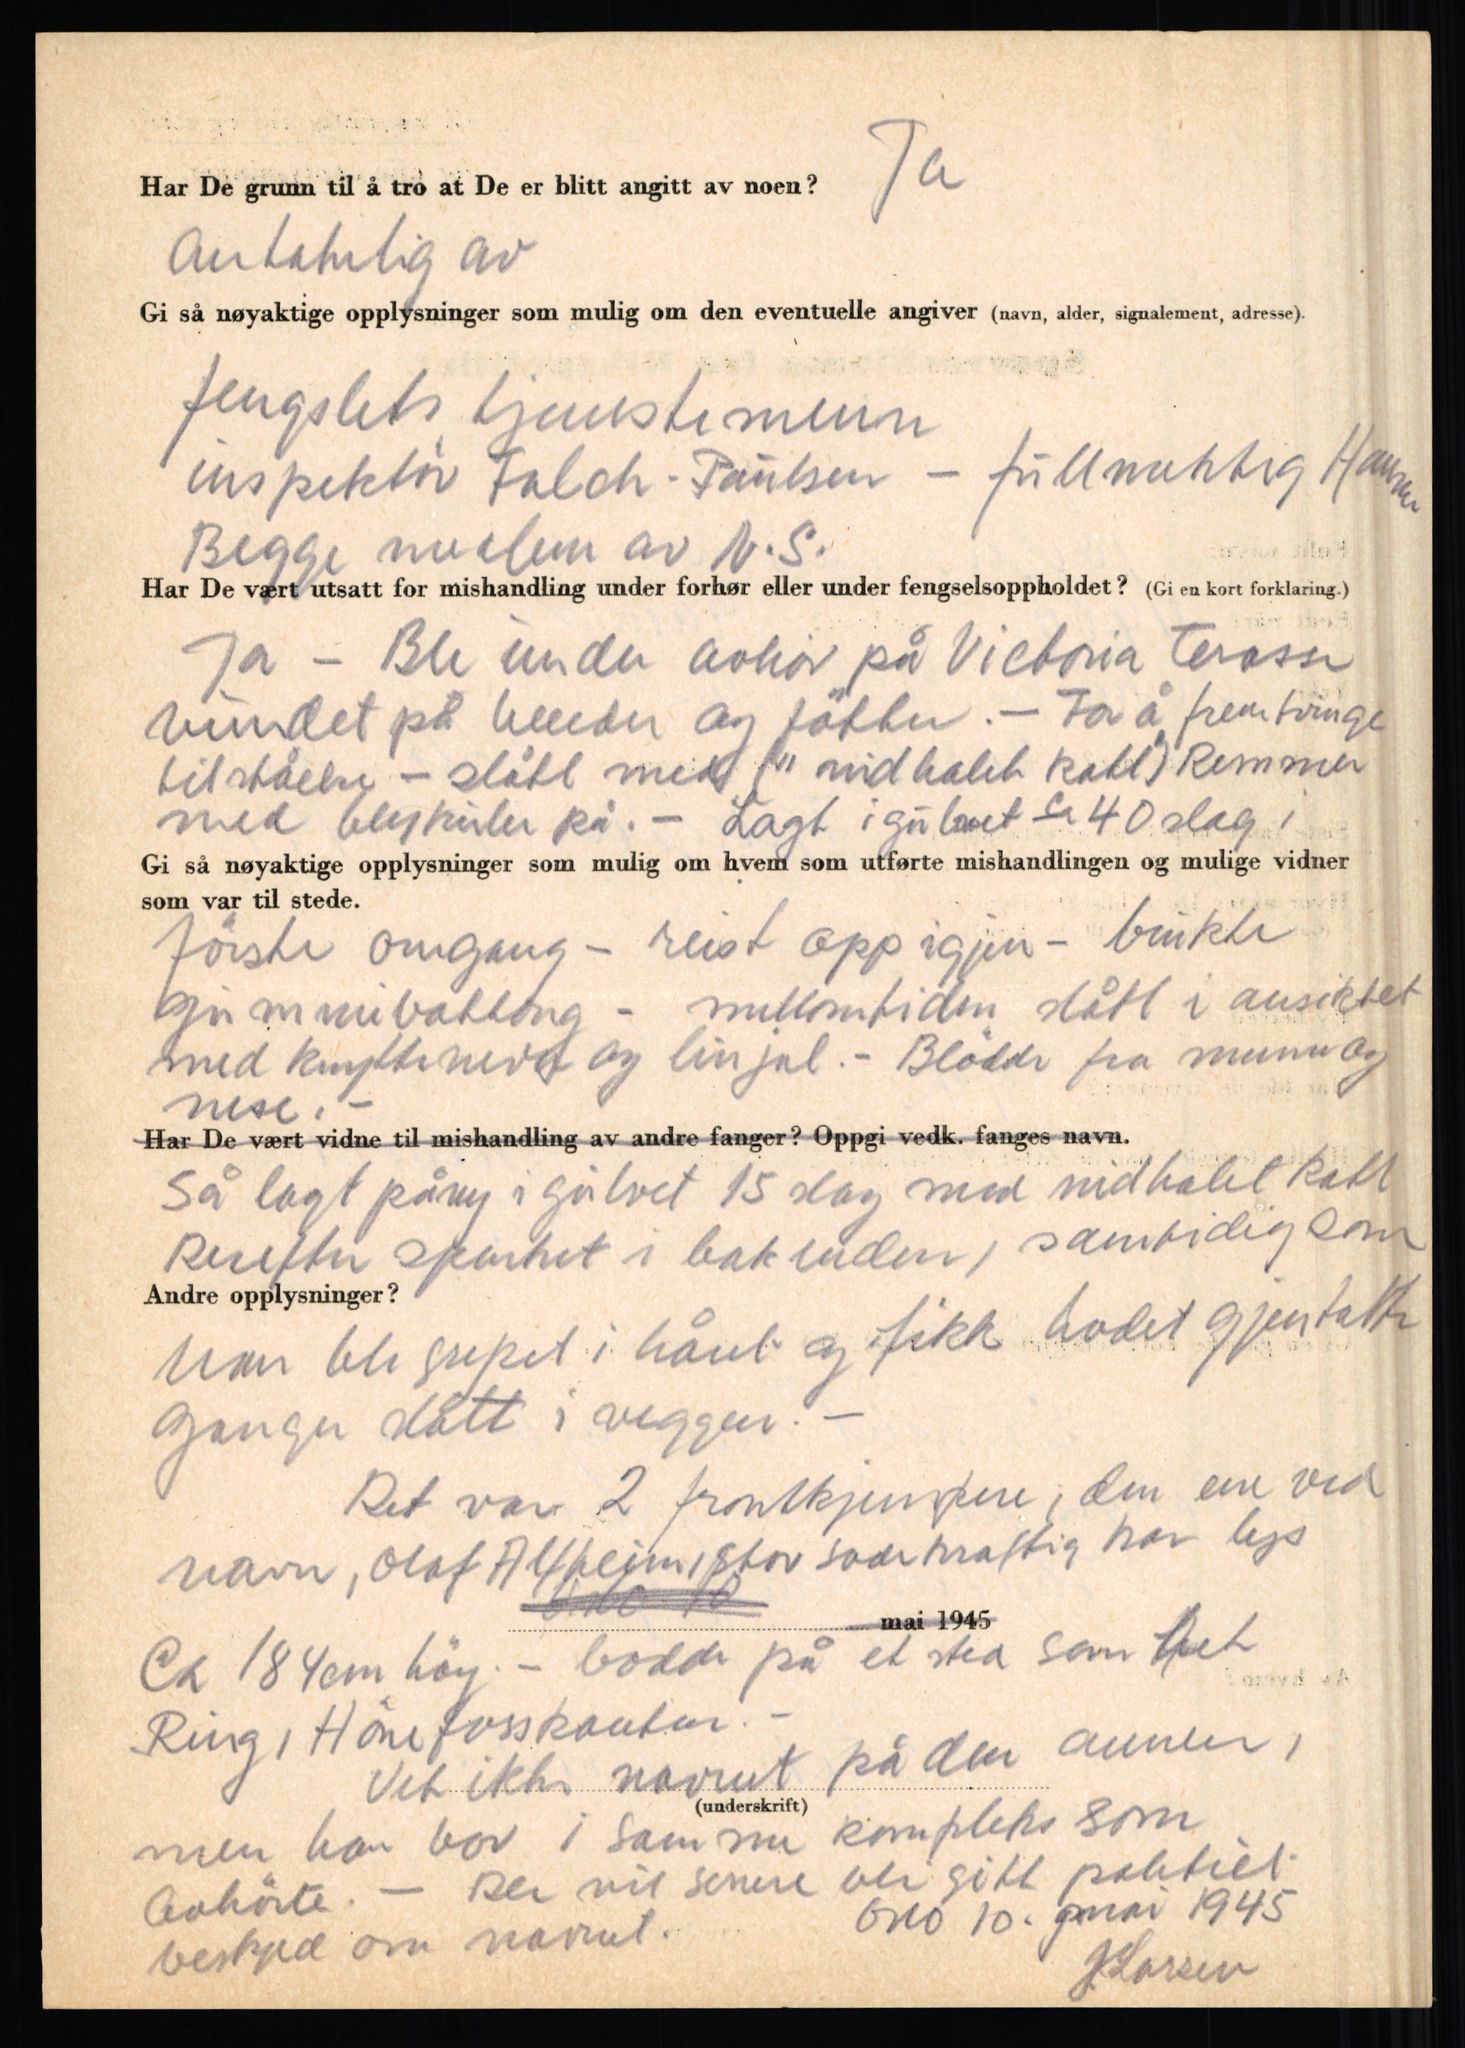 Har De grunn til å tro at De er blitt angitt av noen? Ja
Antakelig av
Gi så nøyaktige opplysninger som mulig om den eventuelle angiver (navn, alder, signalement, adresse).
fengslets tjenestemenn
inspektör Falch-Paulsen – fullmektig Hansen
Begge medlem av N.S.
Har De vært utsatt for mishandling under forhør eller under fengselsoppholdet? (Gi en kort forklaring.)
Ja – Ble under avhör på Victoria Terasse
bundet på hender og fötter. – For å fremtvinge
tilståelse – slått med ("nidhalet katt") Remmer
med blykuler på. – Lagt i gulvet ca 40 slag i
Gi så nøyaktige opplysninger som mulig om hvem som utførte mishandlingen og mulige vidner
som var til stede.
förste omgang – reist opp igjen – brukte
gummibattong – mellomtiden slått i ansiktet
med knyttneve og linjal. – Blödde fra munn og
nese. –
Har De vært vidne til mishandling av andre fanger? Oppgi vedk. fanges navn.
Så lagt påny i gulvet 15 slag med nidhalet katt
Derefter sparket i bakenden, samtidig som
Andre opplysninger?
han ble grepet i håret og fikk hodet gjentatte
ganger slått i veggen. –
Det var 2 frontkjempere, den ene ved
navn, Olaf Alfheim, stor kraftig har lys
mai 1945
Ca 184 cm höy. – bodde på et sted som het
Ring, Hönefosskanten. –
Vet ikke navnet på den annen,
(underskrift)
men han bor i samme kompleks som
avhörte. – Der vil senere bli gitt politiet
beskjed om navnet.
Oslo 10. mai 1945
J Larsen